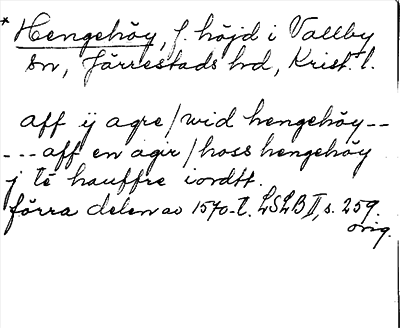 * Hengehöy, f. höjd i Vallby
sn, Järrestads hd, Krist. l.
aff ij agre/wid hengehöy --
--- aff en agir/hoss hengehöy
j tē hauffre iordtt.
förra delen av 1570-t. LSLB II, s. 259.
orig.